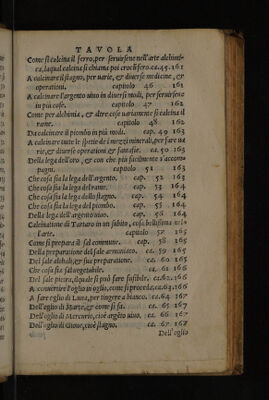 TAVOLA
Come si calcina il ferro, per servirsene nell'arte alchimi-
ca, laqual calcina si chiama poi croco ferro. ca. 45. 161
A calcinare il stagno, per varie, & diverse medicine, &
operationi. capitolo 46 161
A calcinare l'argento vivo in diversi modi, per servirsene
in più cose. capitolo 47 162
Come per alchimia, & altre cose variamente si calcina il
rame. capitolo 48 162
Da calcinare il piombo in più modi. cap. 49 163
A calcinare tutte le sorte de i mezzi minerali, per fare va
rie, & diverse operationi & fantasie. ca. 50 163
Della lega dell'oro, & con che più facilmente s'accom-
pagni. capitolo 51 163
Che cosa sia la lega dell'argento. ca. 52 163
Che cosa sia la lega del rame. cap. 53 164
Che cosa sia la lega dello stagno. cap. 54 164
Che cosa sia la lega del piombo. cap. 55 164
Della lega dell'argento vivo. cap. 56 164
Calcinatione di Tartaro in un subito, cosa bellissima nel
l'arte. capitolo 57 165
Come si prepara il sal commune. cap. 58 165
Della preparatione del sale armoniaco. ca. 59 165
Del sale alchali, & sua preparatione. ca. 60 165
Che cosa sia sal vegetabile. ca. 61 166
Del sale pietra, il quale si può fare fusibile. ca. 62. 166
A convertire l'oglio in oglio, come si proceda, ca. 63. 166
A fare oglio di Luna, per tingere a bianco. ca. 64 167
Dell'oglio di Marte, & come si fa. ca. 65 167
Dell'oglio di Mercurio, cioè argẽto vivo. ca. 66 167
Dell'oglio di Giove, cioè stagno. ca. 67 167
Dell'oglio